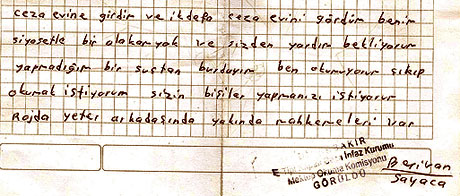 ceza evine girdim ve ilk defa ceza evini gördüm benim
siyasetle bir alakam yok ve sizden yardım bekliyorum
yapmadığım bir suçtan burdayım ben okumuyorum çıkıp
okumak istiyorum sizin bişiler yapmanızı istiyorum
Rojda yeter arkadaşında yakında mahkemeleri var
İnfaz Kurumu
Mektup Okuma Komisyonu
GÖRÜLDÜ
Berivan
Sayaca